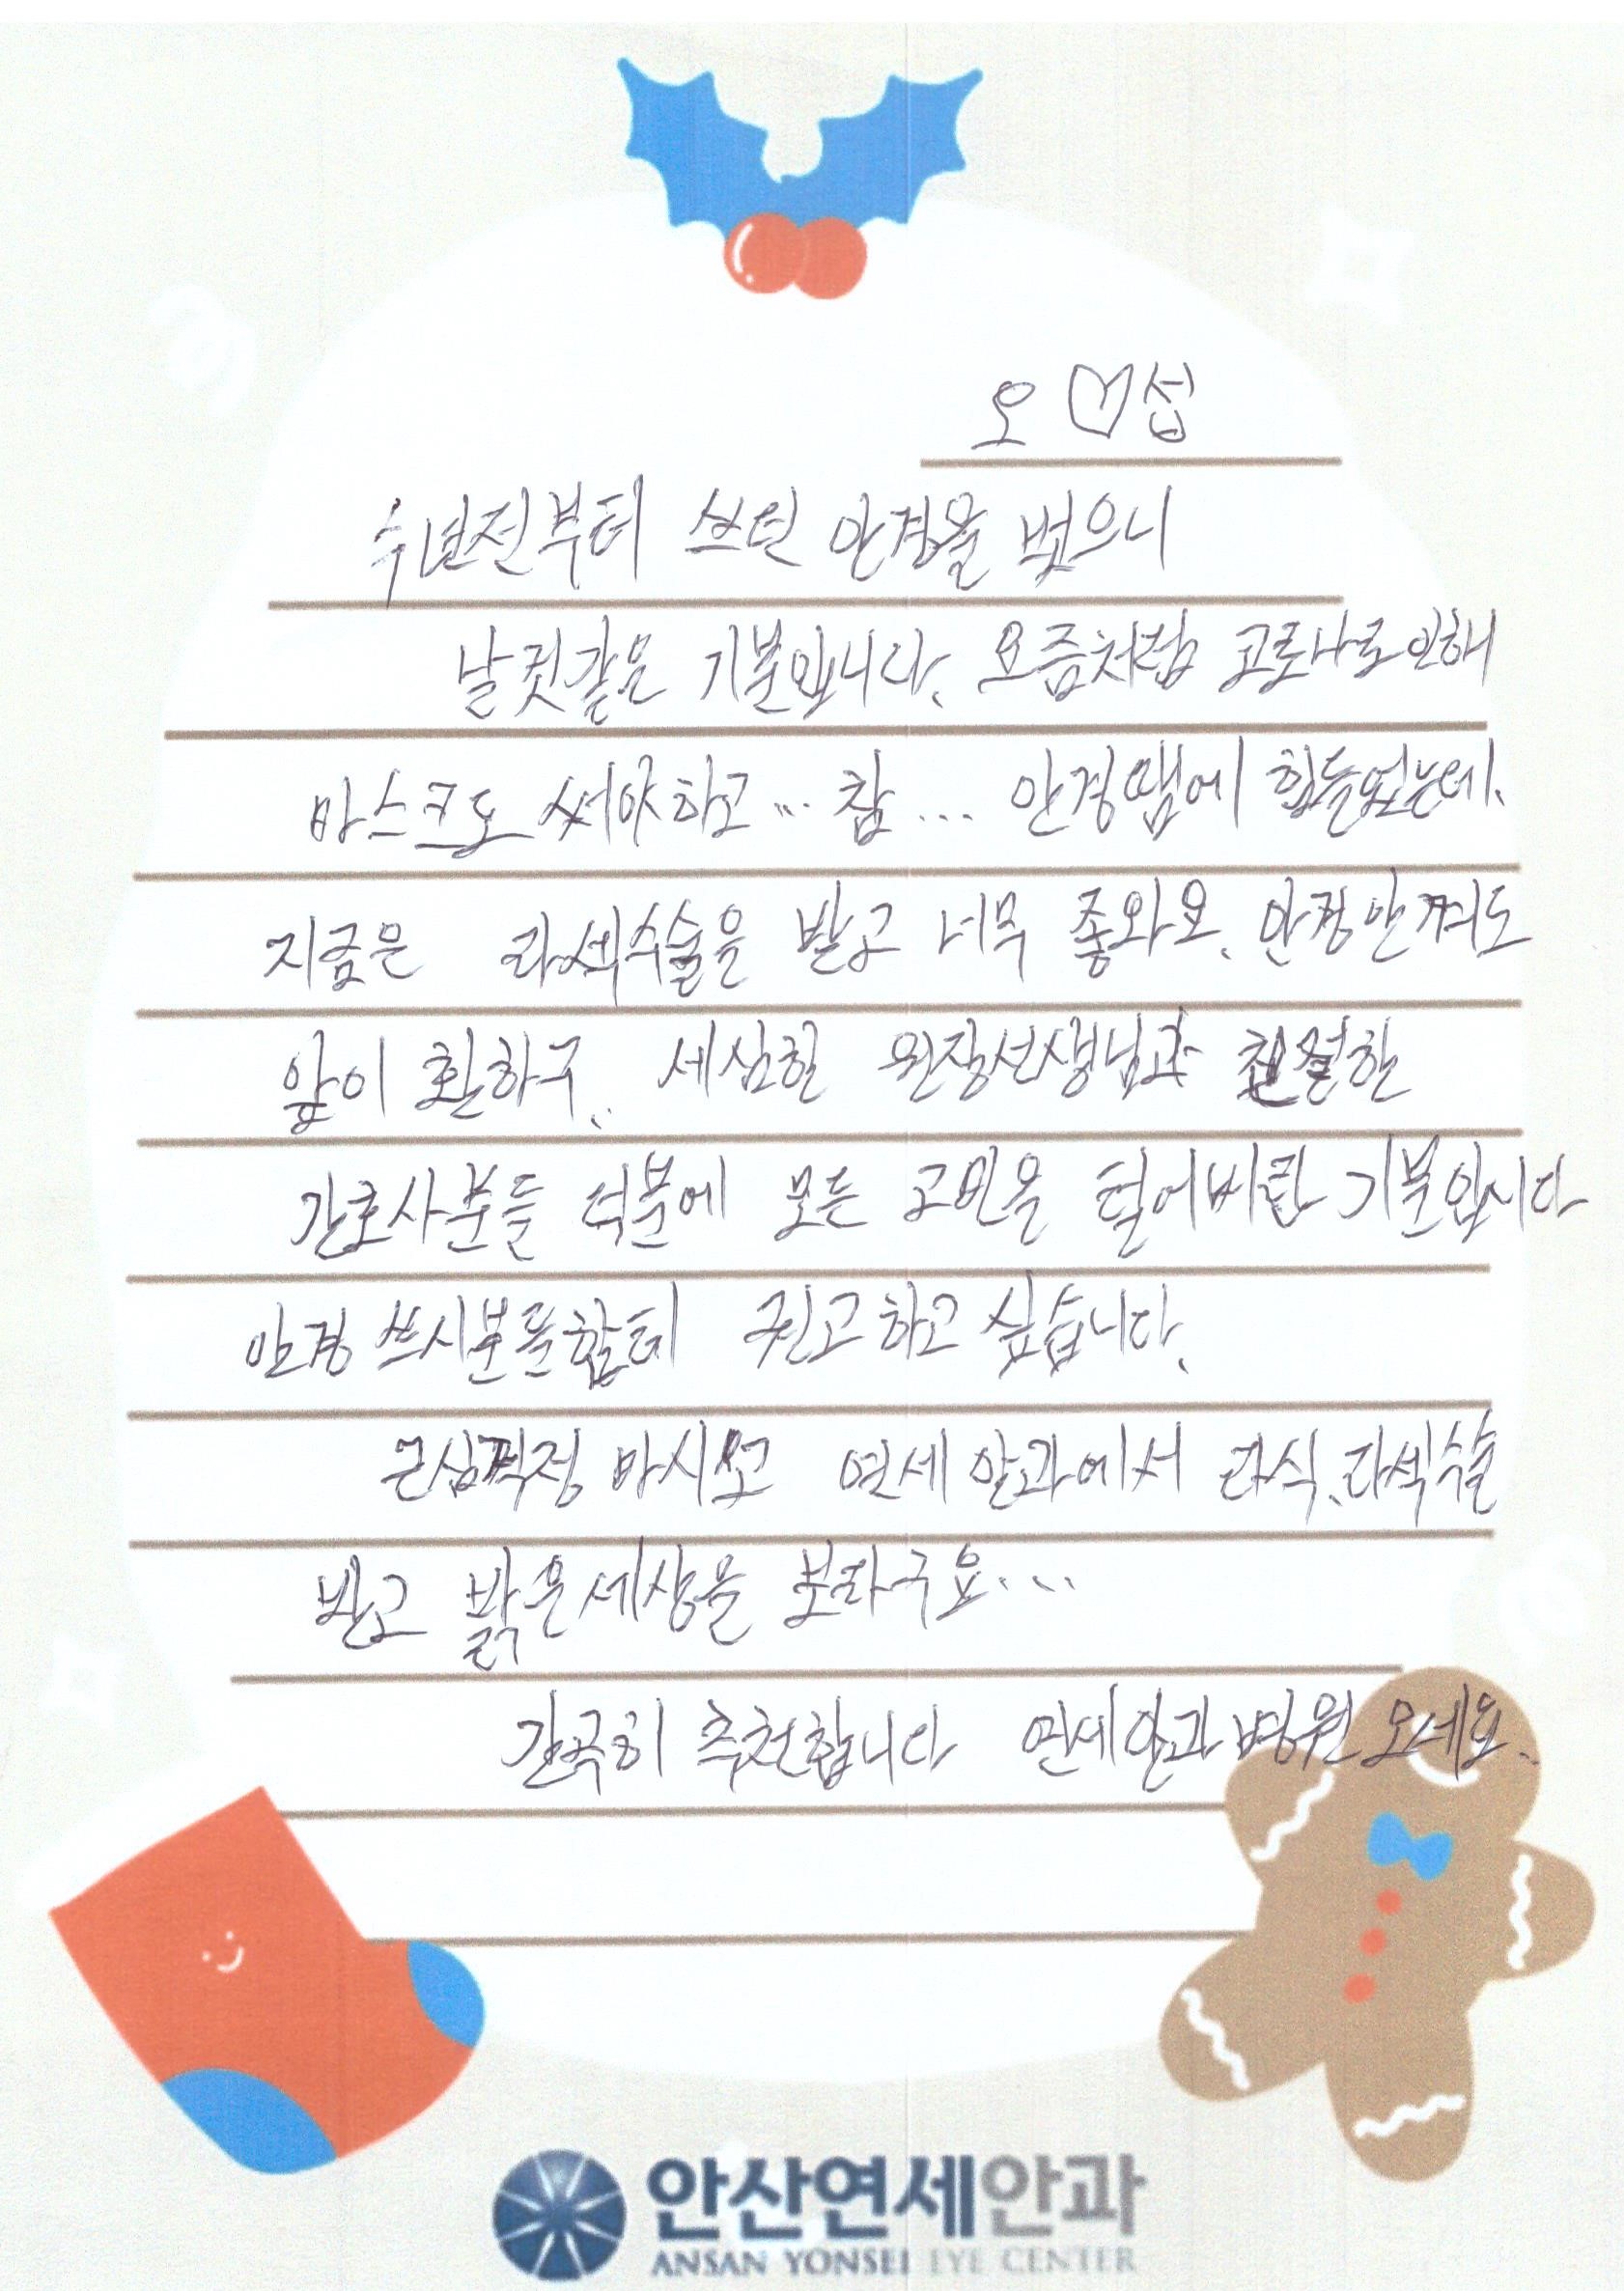 오♡섭
수년전부터 쓰던 안경을 벗으니
날것같은 기분입니다. 요즘처럼 코로나로 인해
마스크도 써야하고... 참... 안경땜에 힘들었는데.
지금은 라섹수술을 받고 너무 좋와요. 안경안껴도
앞이 환하구.. 세심한 원장선생님과 친절한
간호사분들 덕분에 모든 고민을 털어버린 기분입니다
안경 쓰시분들한테 권고하고 싶습니다.
근심걱정 마시고 연세안과에서 라식.라섹수술
받고 밝은세상을 보라구요...
간곡히 추천합니다 연세안과병원 오세요..
안산연세안과
ANSAN YONSEI EYE CENTER